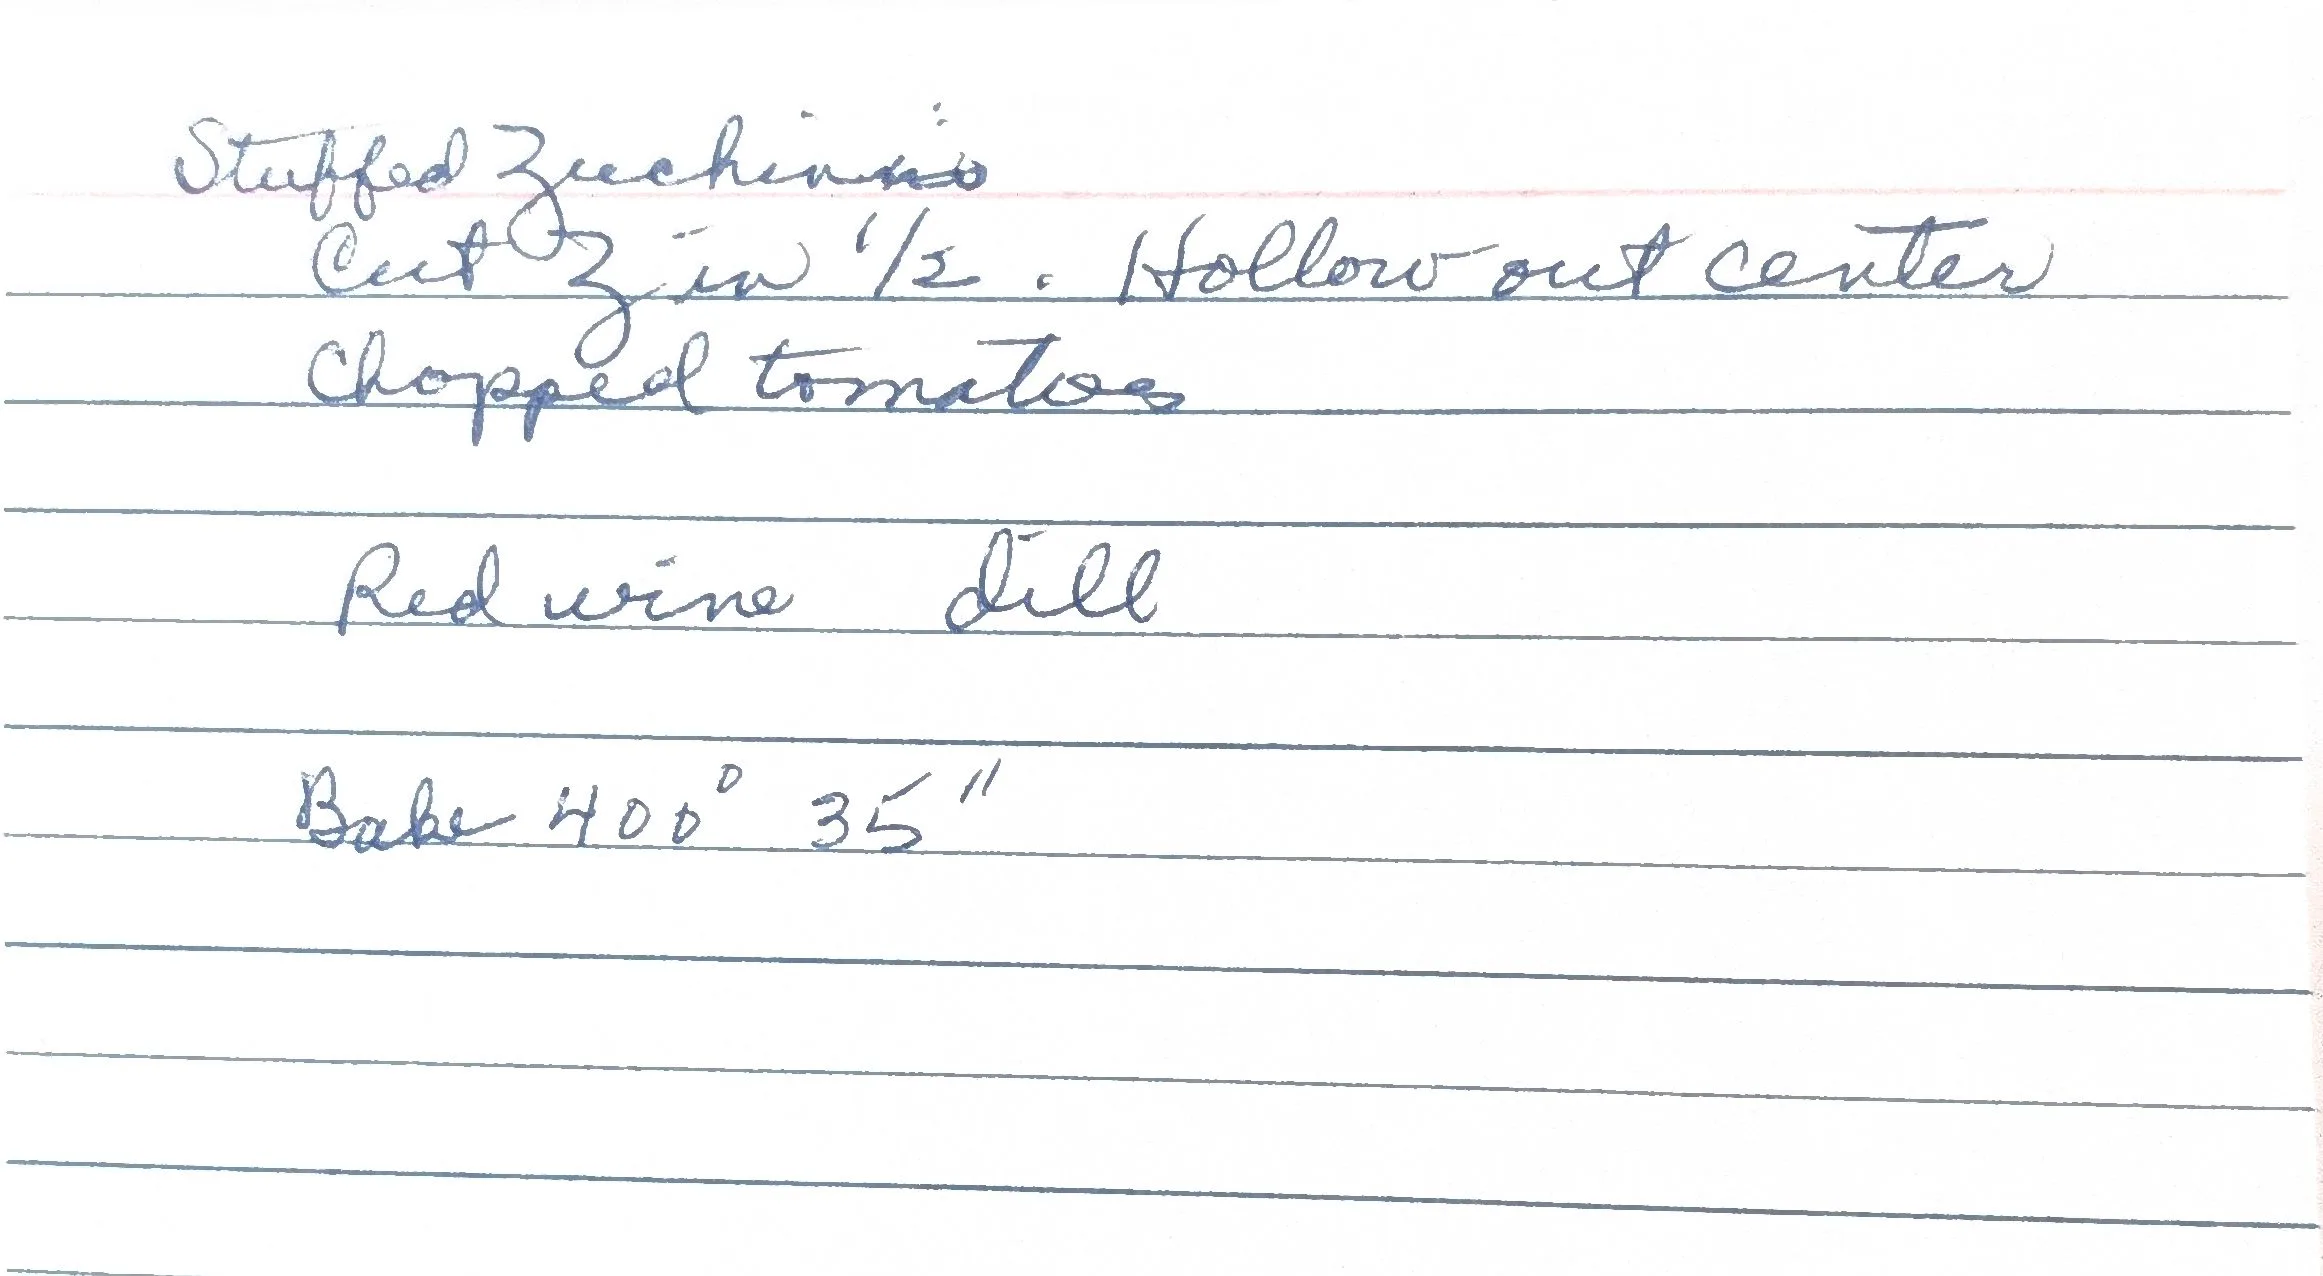 Stuffed Zuchinnis
Cut Z in 1/2. Hollow out center
Chopped tomatoes
Red wine dill
Bake 400° 35"